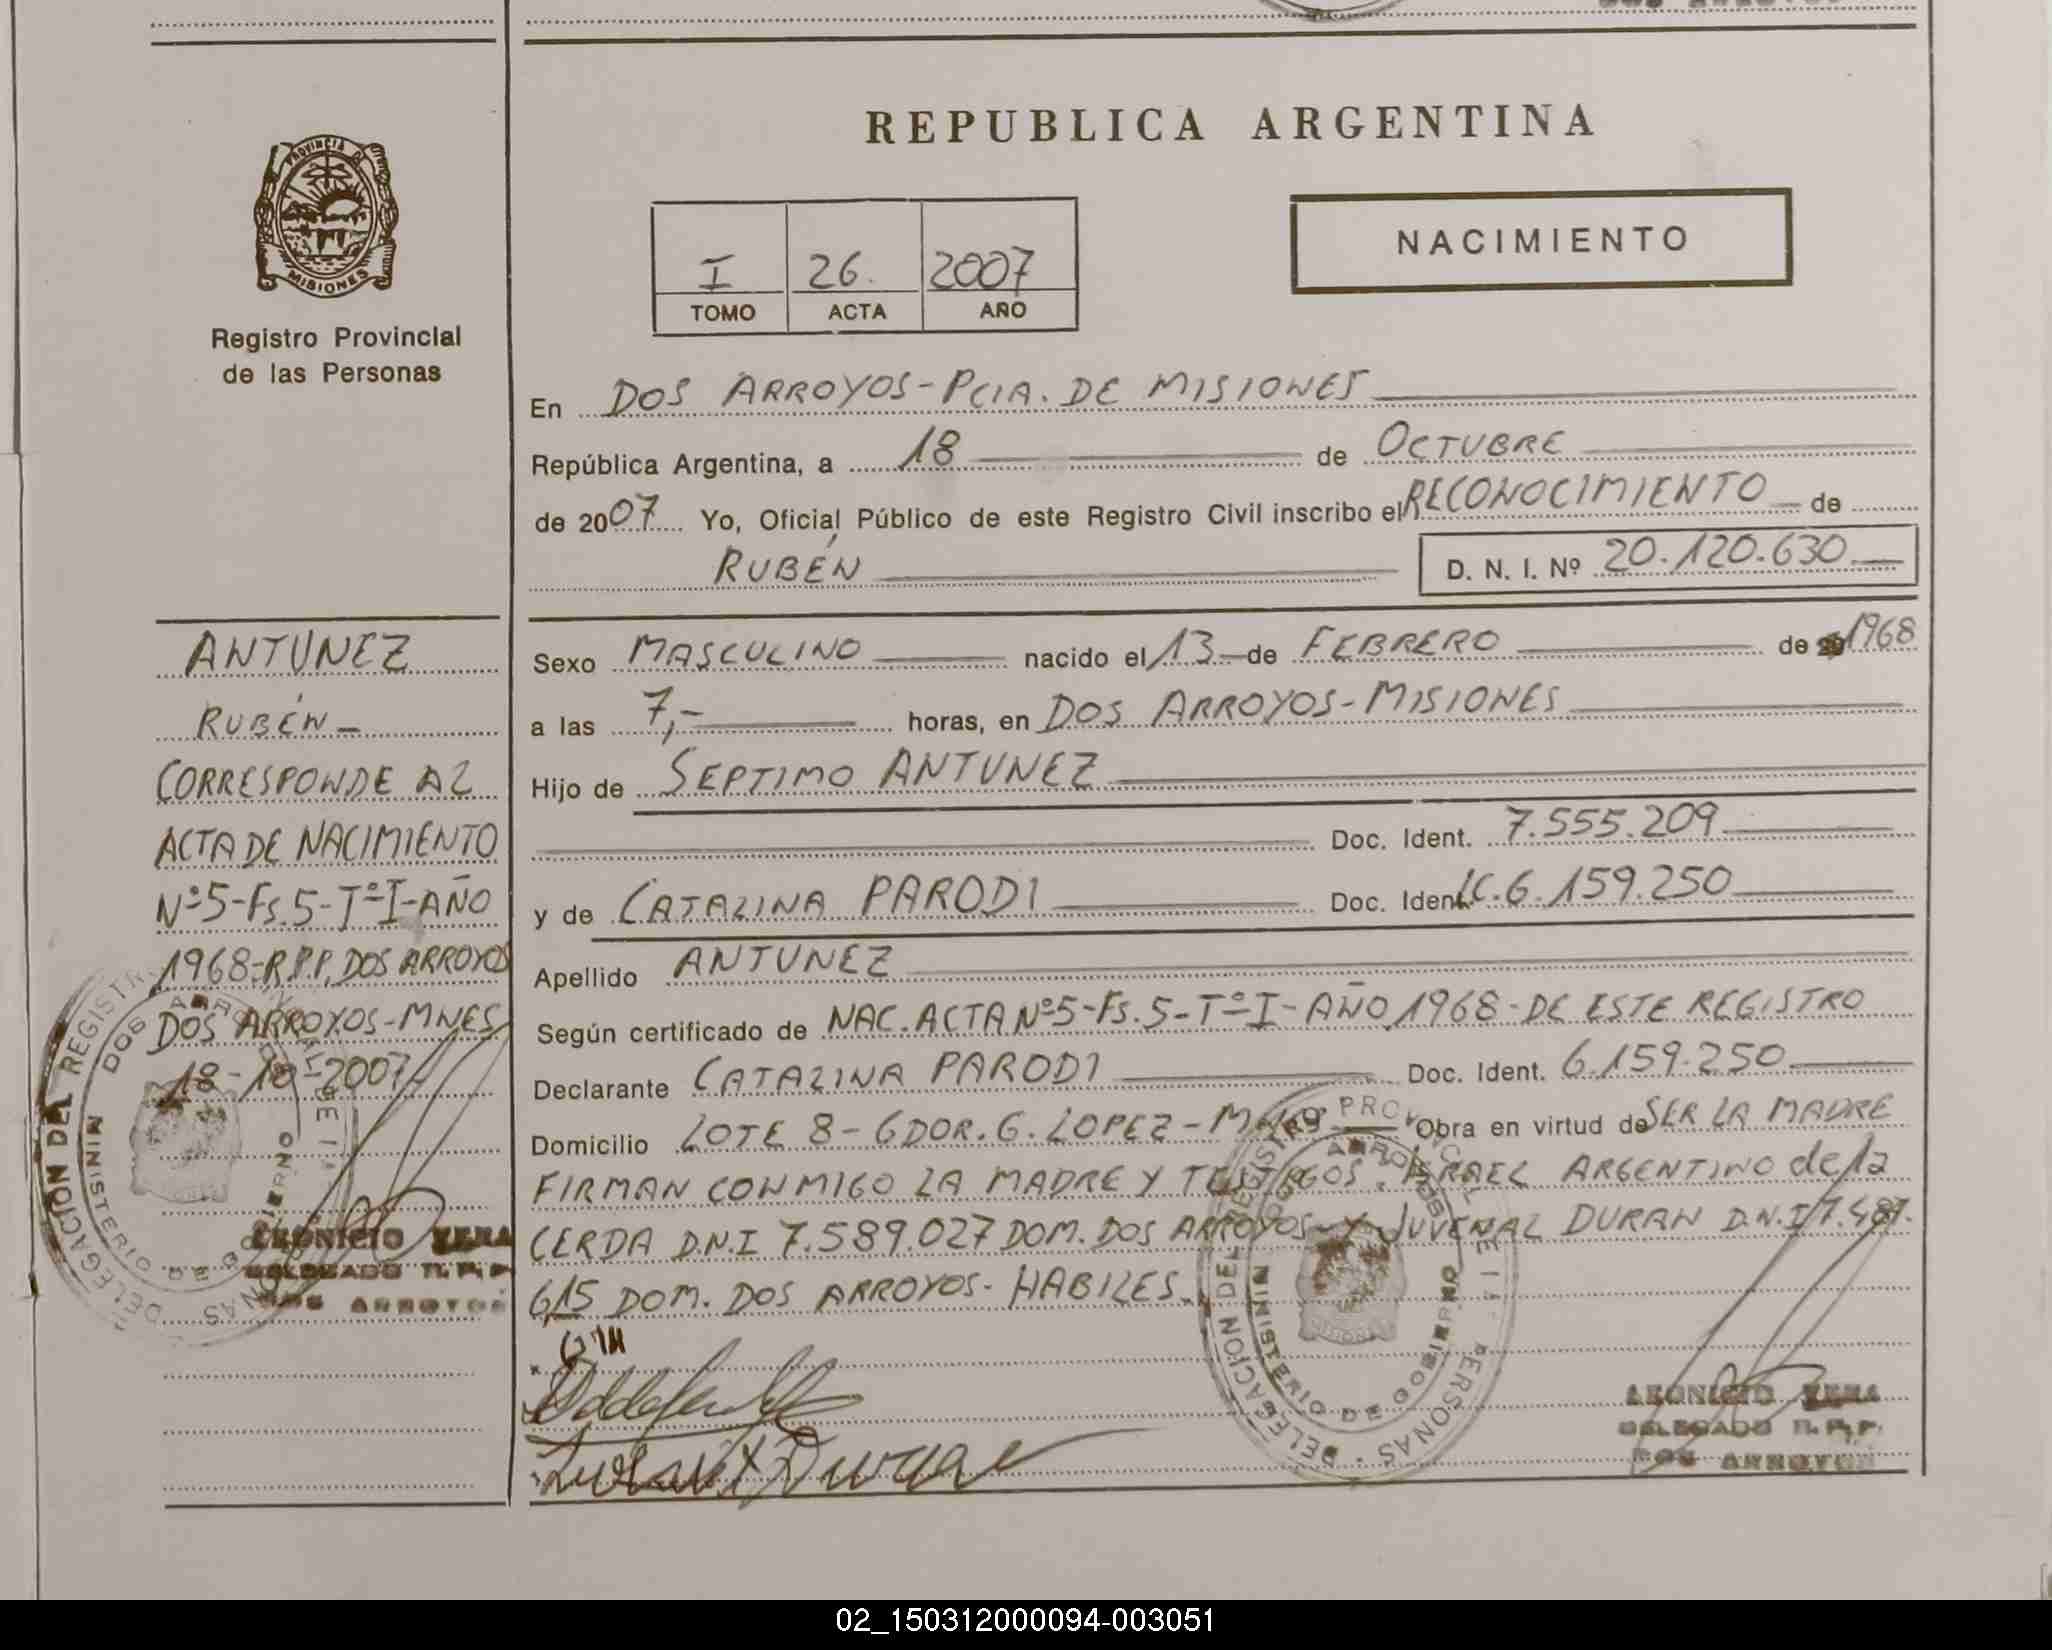 REPUBLICA ARGENTINA
PROVINCIA DE
MISIONES
Registro Provincial
de las Personas
I 26. 2007
TOMO ACTA AÑO
NACIMIENTO
En DOS ARROYOS-PCIA. DE MISIONES
República Argentina, a 18 de OCTUBRE
de 2007 Yo, Oficial Público de este Registro Civil inscribo el RECONOCIMIENTO de
RUBÉN D. N. I. Nº 20.120.630
Sexo MASCULINO nacido el 13 de FEBRERO de 1968
a las 7,- horas, en DOS ARROYOS-MISIONES
Hijo de SEPTIMO ANTUNEZ
Doc. Ident. 7.555.209
y de CATALINA PARODI Doc. Ident. LC.6.159.250
Apellido ANTUNEZ
Según certificado de NAC. ACTA Nº5-Fs.5-TºI-AÑO 1968-DE ESTE REGISTRO
Declarante CATALINA PARODI Doc. Ident. 6.159.250
Domicilio LOTE 8-GDOR.G.LOPEZ- Obra en virtud de SER LA MADRE
FIRMAN CONMIGO LA MADRE Y TESTIGOS. ISRAEL ARGENTINO de la
CERDA D.N.I 7.589.027 DOM. DOS ARROYOS-Y JUVENAL DURAN D.N.I 7.487.
615 DOM. DOS ARROYOS-HABILES.
Duran
ANTUNEZ
RUBÉN-
CORRESPONDE AL
ACTA DE NACIMIENTO
Nº5-Fs.5-TºI-AÑO
1968-R.P.P. DOS ARROYOS
DOS ARROYOS-MNES
18-10-2007
LEONICIO VERA
DELEGADO R.P.P.
DOS ARROYOS
LEONICIO VERA
DELEGADO R.P.P.
DOS ARROYOS
DELEGACION DEL REGISTRO
DOS ARROYOS
MINISTERIO DE GOBIERNO
DELEGACION DEL REGISTRO PROVINCIAL DE LAS PERSONAS
DOS ARROYOS
MINISTERIO DE GOBIERNO
02_150312000094-003051